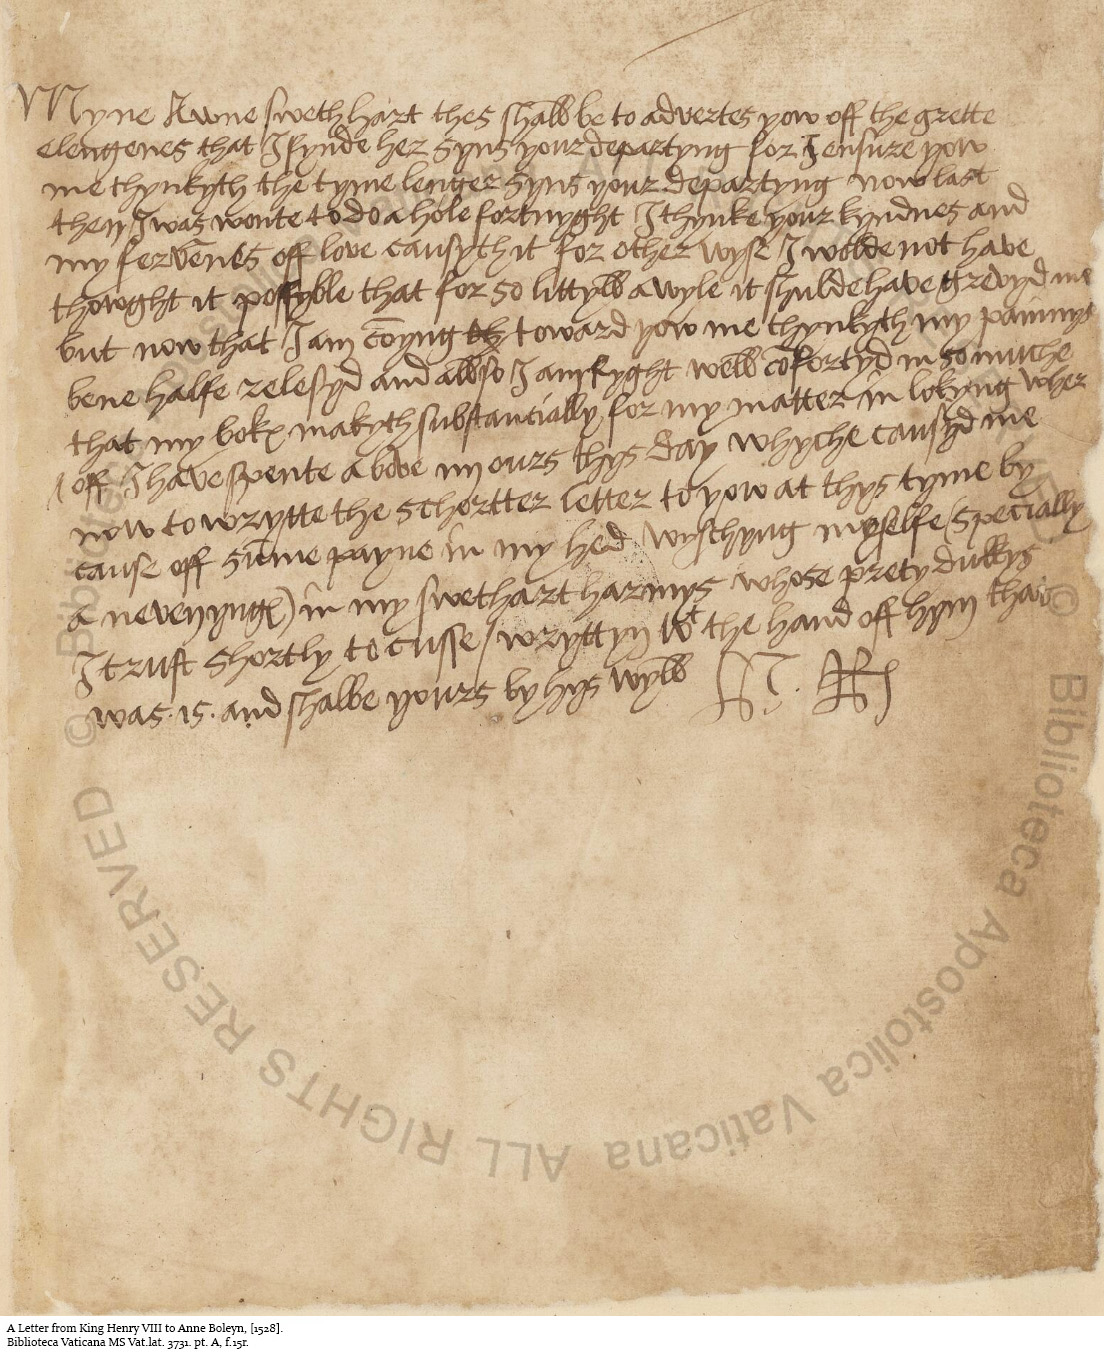 Myne Awne swethhart thes shall be to advertes yow off the grette
elengenes that I fynde her syns your departyng for I ensure yow
me thynkyth the tyme lenger syns your departyng now last
then I was wonte to do a hole fortnyght I thynke your kyndnes and
my fervēnes off love causyth it for other wyse I wolde not have
thowght it possyble that for so littyll a wyle it shulde have grevyd me
but now that I am cōyng toward yow me thynkyth my painnys
bene halfe relesyd and allso I am ryght well cōfortyd in so muche
that my bok makyth substancially for my matter in lokyng wher
off I have spente a bove iiij ours thys day whyche causyd me
now to wrytte the schortter letter to yow at thys tyme by
cause off sūme payne in my hed wyschyng myselfe (specially
a nevenyng) in my swethart harmys whose prety dukkys
I trust shortly to cusse / wryttyn wt the hand off hym that
was . is . and shalbe yours by hys wyll H. Rx
© Biblioteca Apostolica Vaticana ALL RIGHTS RESERVED
A Letter from King Henry VIII to Anne Boleyn, [1528].
Biblioteca Vaticana MS Vat.lat. 3731. pt. A, f.15r.